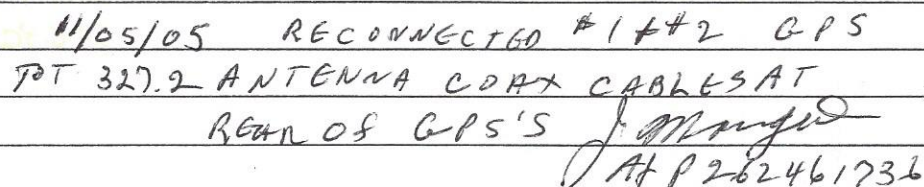 11/05/05 RECONNECTED #1 & #2 GPS
TT 327.2 ANTENNA COAX CABLES AT
REAR OF GPS'S
A&P 262461736